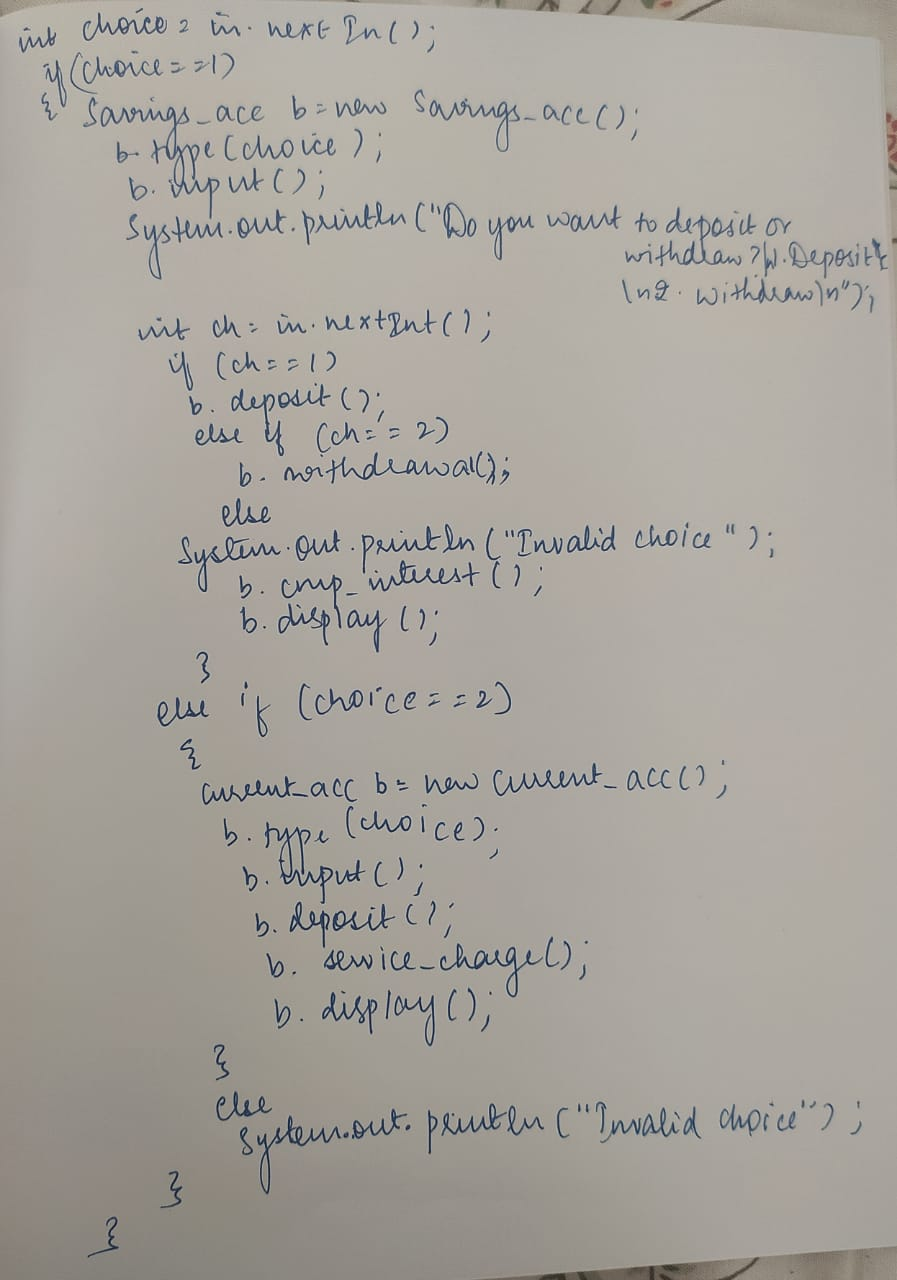 int choice = in. next In();
if (choice==1)
{ Savings_acc b=new Savings_acc();
b. type (choice);
b. input ();
System.out.println ("Do you want to deposit or
withdraw ?\1. Deposit
\n2. Withdraw\n");
int ch= in.nextInt();
if (ch==1)
b. deposit ();
else if (ch==2)
b. withdrawal();
else
System.out.println ("Invalid choice ");
b. cmp_interest ();
b. display ();
}
else if (choice==2)
{
Current_acc b= new Current_acc();
b. type (choice);
b. input ();
b. deposit ();
b. service_charge();
b. display ();
}
else
System.out. println ("Invalid choice");
}
}